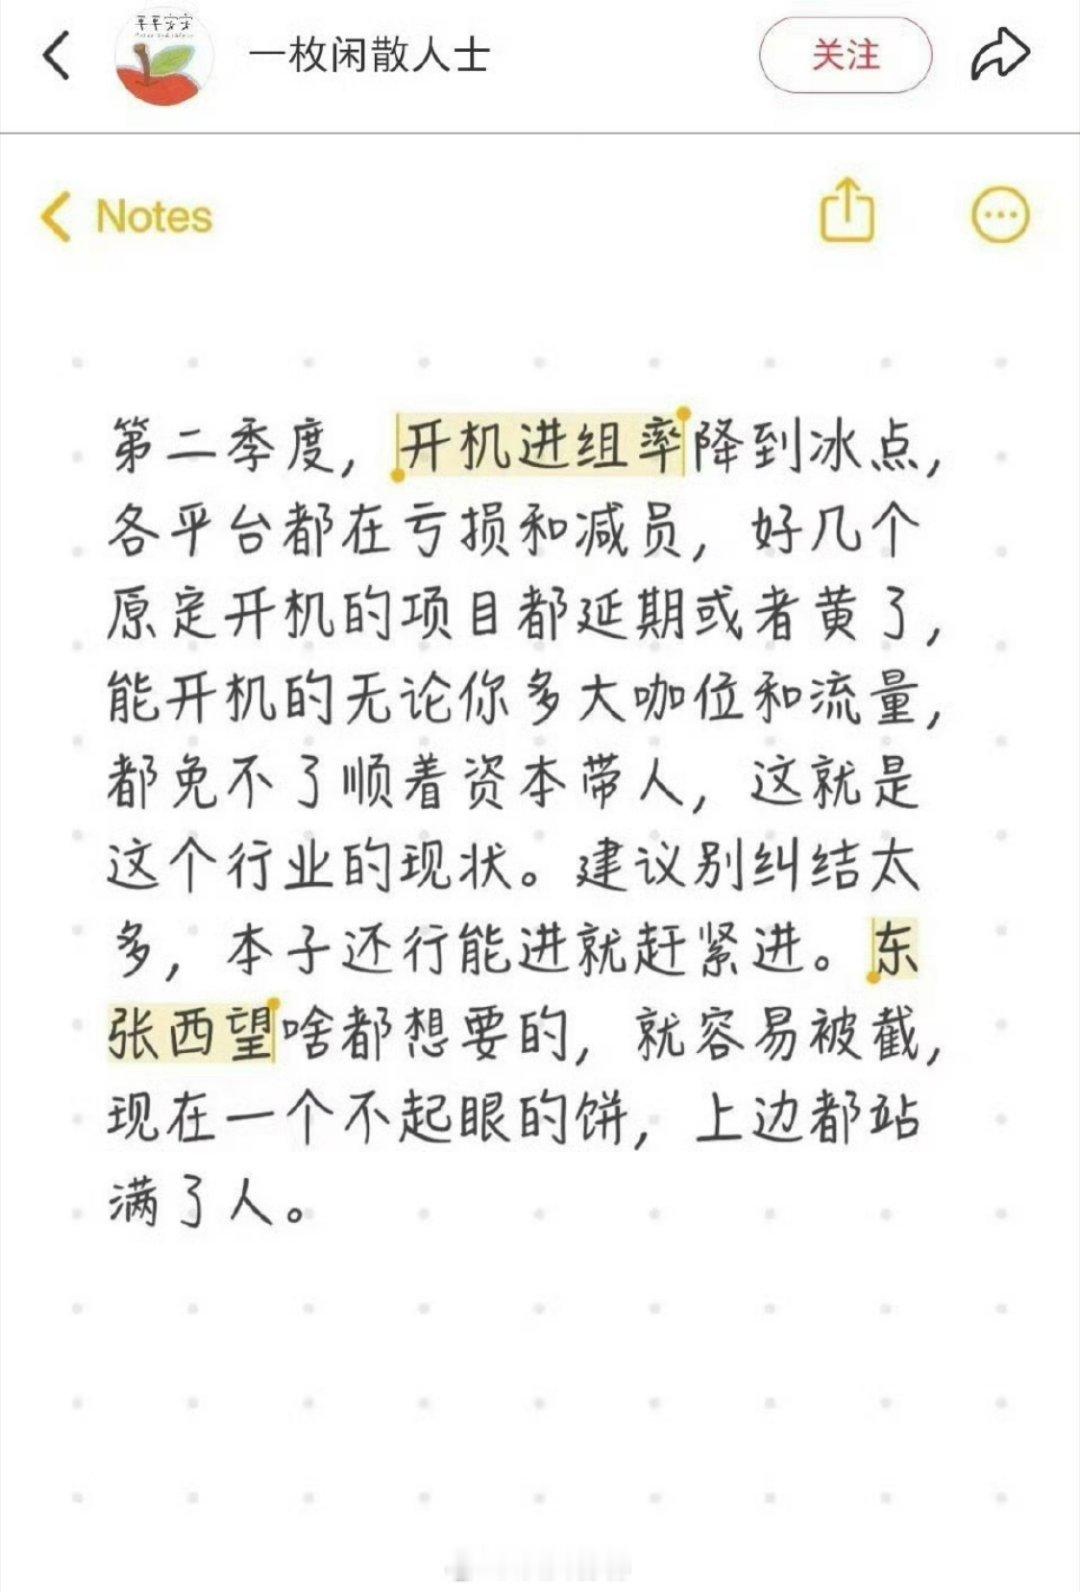 平平安安
一枚闲散人士
关注
Notes
第二季度，开机进组率降到冰点，
各平台都在亏损和减员，好几个
原定开机的项目都延期或者黄了，
能开机的无论你多大咖位和流量，
都免不了顺着资本带人，这就是
这个行业的现状。建议别纠结太
多，本子还行能进就赶紧进。东
张西望啥都想要的，就容易被截，
现在一个不起眼的饼，上边都站
满了人。